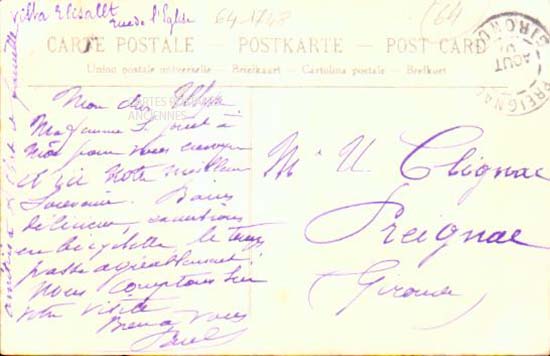 Villa Elisabet
Rue de l'Eglise
64-1748
(64
CARTE POSTALE - POSTKARTE - POST CARD
Union postale universelle - Briefkaart - Cartolina postale - Brefkort
PREIGNAC
AOUT
GIRONDE
CARTES POSTALES
ANCIENNES
Mon cher
Ma femme se joint à
moi pour vous envoyer
ici notre meilleur
Souvenir. Bains
délicieux, excursions
en bicyclette, le temps
passe agréablement.
Nous comptons sur
votre visite
Bien à vous
Paul
amitiés à famille
Mr U. Clignac
Preignac
Gironde